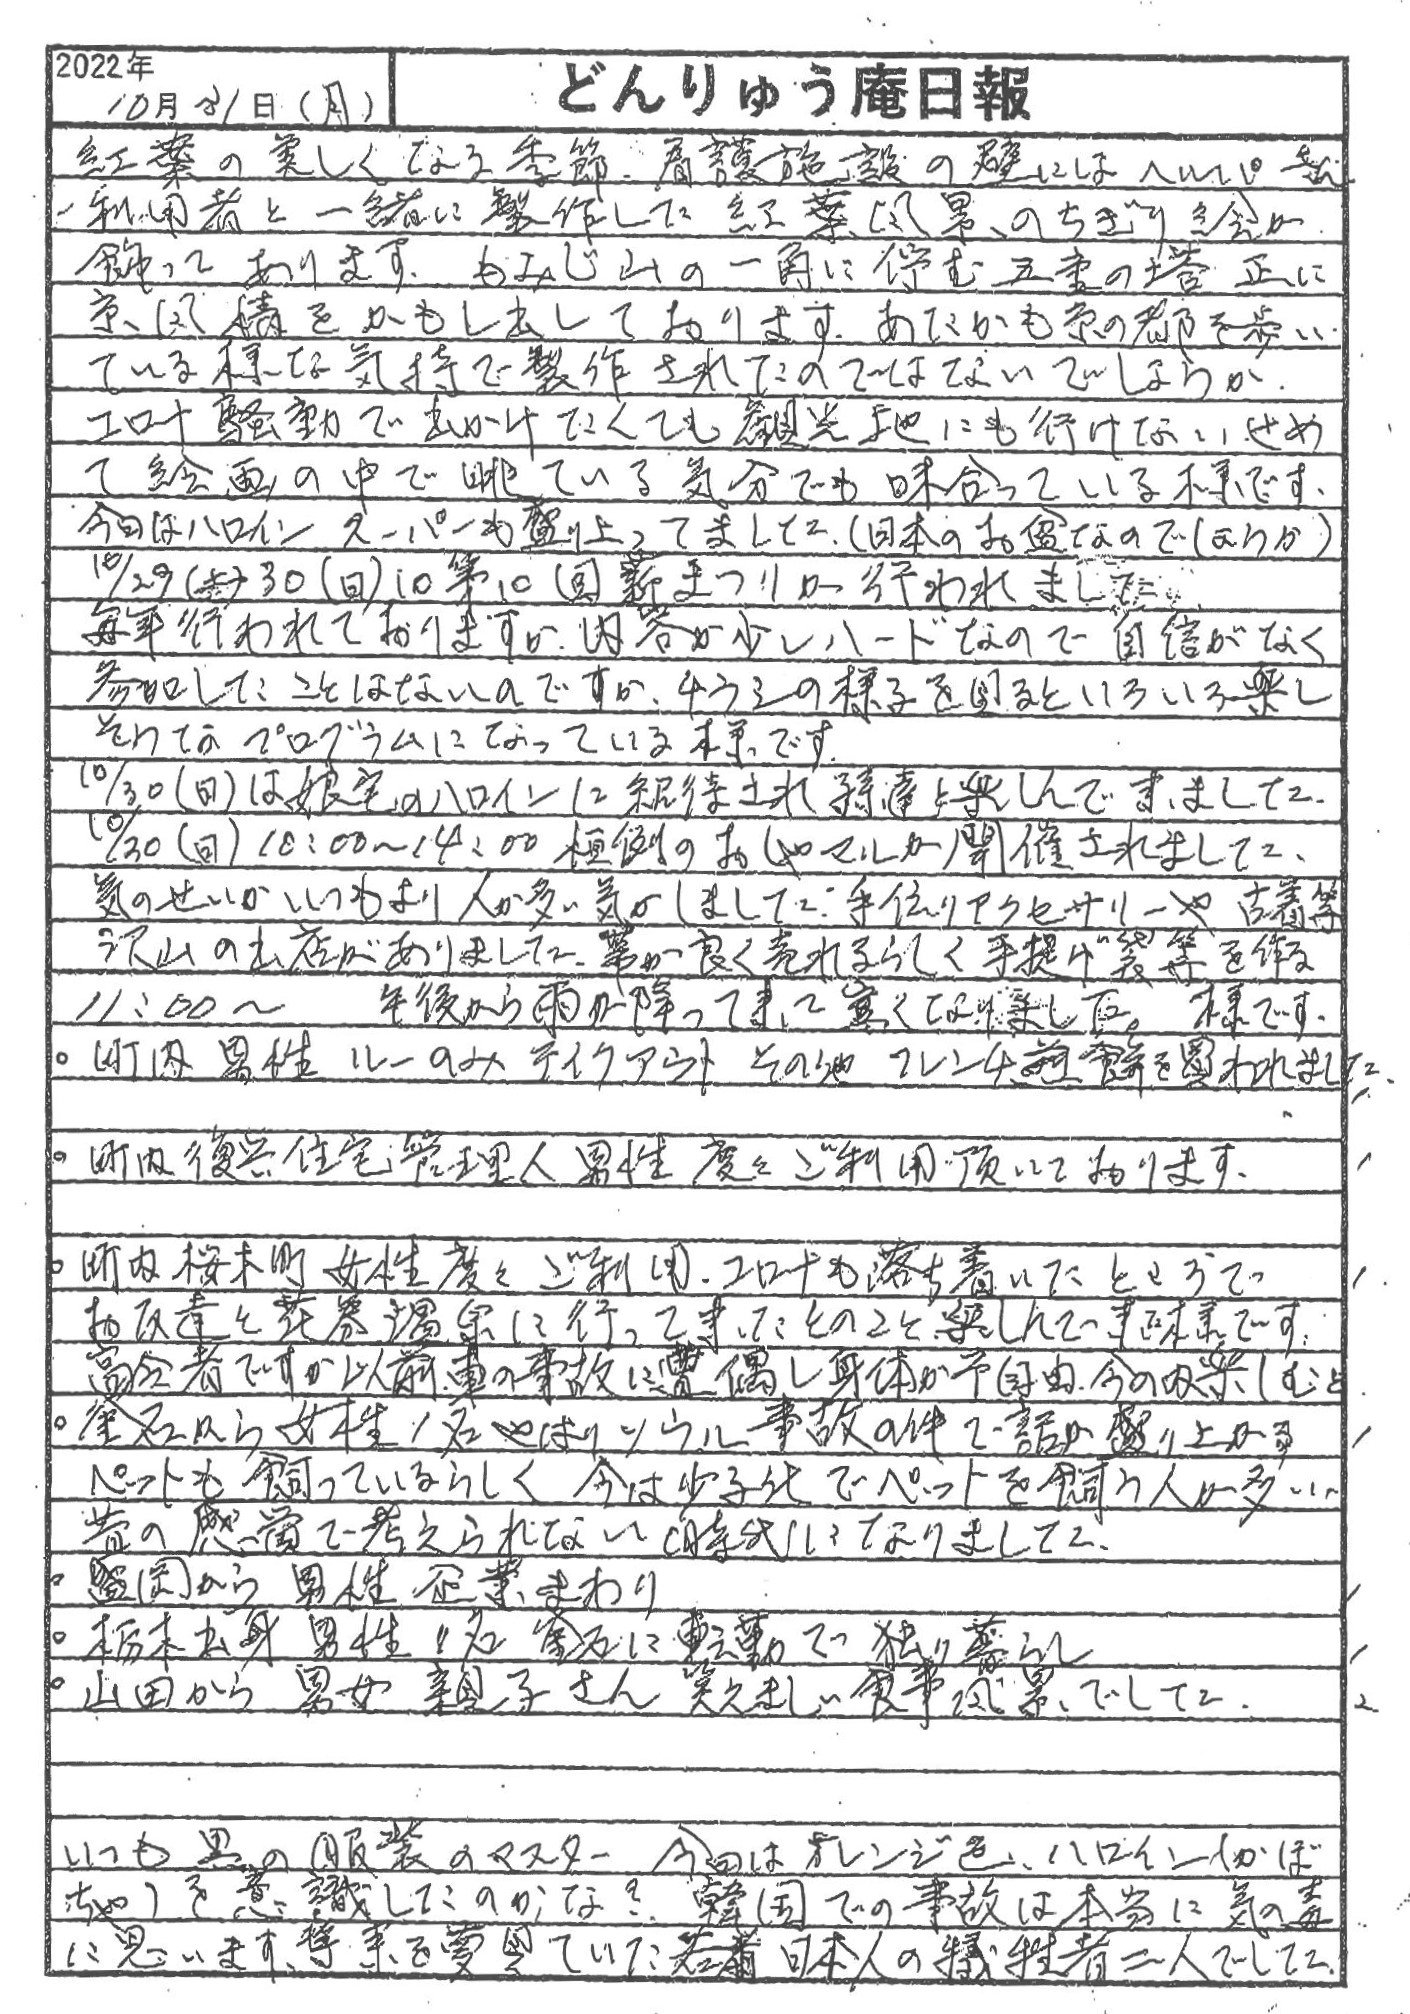 2022年
10月31日(月)
どんりゅう庵日報
紅葉の美しくなる季節.看護施設の壁にはヘルパーさん
利用者と一緒に製作した紅葉風景のちぎり絵が
飾ってあります.もみじ山の一角に佇む五重の塔正に
京風情をかもし出しております.あたかも京の都を歩い
ている様な気持で製作されたのではないでしょうか.
コロナ騒動で出かけたくても観光地にも行けない、せめ
て絵画の中で眺ている気分でも味合っている様です.
今日はハロイン スーパーも盛り上ってました.(日本のお盆なのでしょうか)
10/29(土)30(日)に第10回薪まつりが行われました
毎年行われておりますが.内容が少しハードなので自信がなく
参加したことはないのですが、チラシの様子を見るといろいろ楽し
そうなプログラムになっている様です.
10/30(日)は娘宅のハロインに招待され孫達と楽しんで来ました.
10/30(日)10:00〜14:00 恒例のおしゃマルが開催されました、
気のせいかいつもより人が多い気がしました.手作りアクセサリーや古着等
沢山の出店がありました.帯が良く売れるらしく手提げ袋等を作る
11:00〜 午後から雨が降って来て寒くなりました。 様です.
○町内 男性 ルーのみテイクアウト その他 フレンチ 煎餅を買われました.
○町内復興住宅管理人男性 度々ご利用頂いております. 1
○町内桜木町 女性 度々ご利用.コロナも落ち着いたところで 1
お友達と花巻温泉に行って来たとのこと楽しんで来た様です.
高令者ですが以前車の事故に遭偶し身体が不自由.今の内楽しむと
○釜石から女性1名 やはりソウル事故の件で話が盛り上がる 1
ペットも飼っているらしく 今は少子化でペットを飼う人が多い
昔の感覚で考えられない時代になりました.
○盛岡から男性 企業まわり 1
○栃木出身 男性1名 釜石に転勤で独り暮らし 1
○山田から男女 親子さん 笑えましい食事風景でした. 2
いつも黒の服装のマスター 今日はオレンジ色、ハロイン(かぼ
ちゃ)を意識したのかな? 韓国での事故は本当に気の毒
に思います、将来を夢見ていた若者 日本人の犠牲者二人でした.